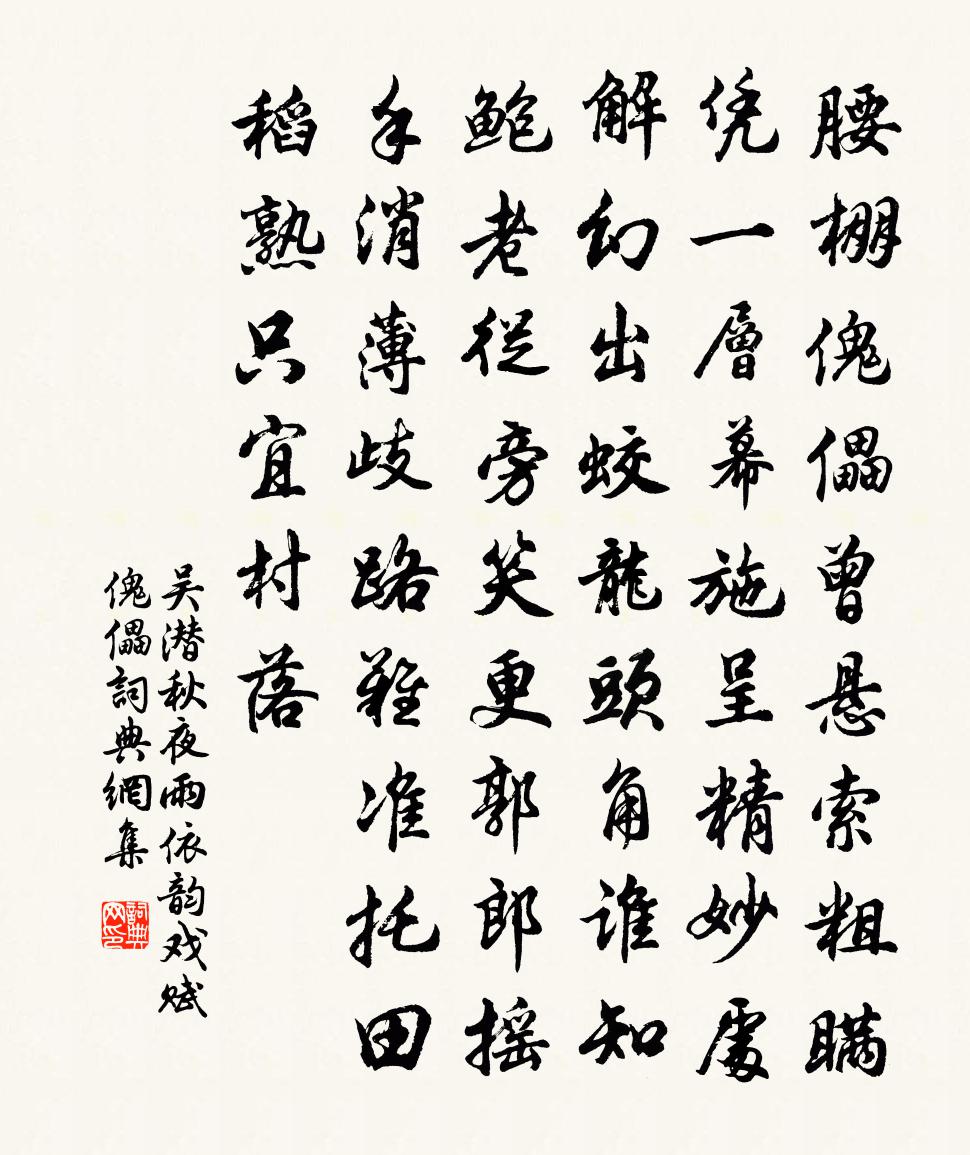 腰棚傀儡曾悬索粗瞒
凭一層幕施呈精妙處
解幻出蛟龍頭角谁知
鲍老從旁笑更郭郎摇
手消薄歧路難准托田
稻熟只宜村落
吴潜秋夜雨依韵戏赋
傀儡詞典網集
詞典网印